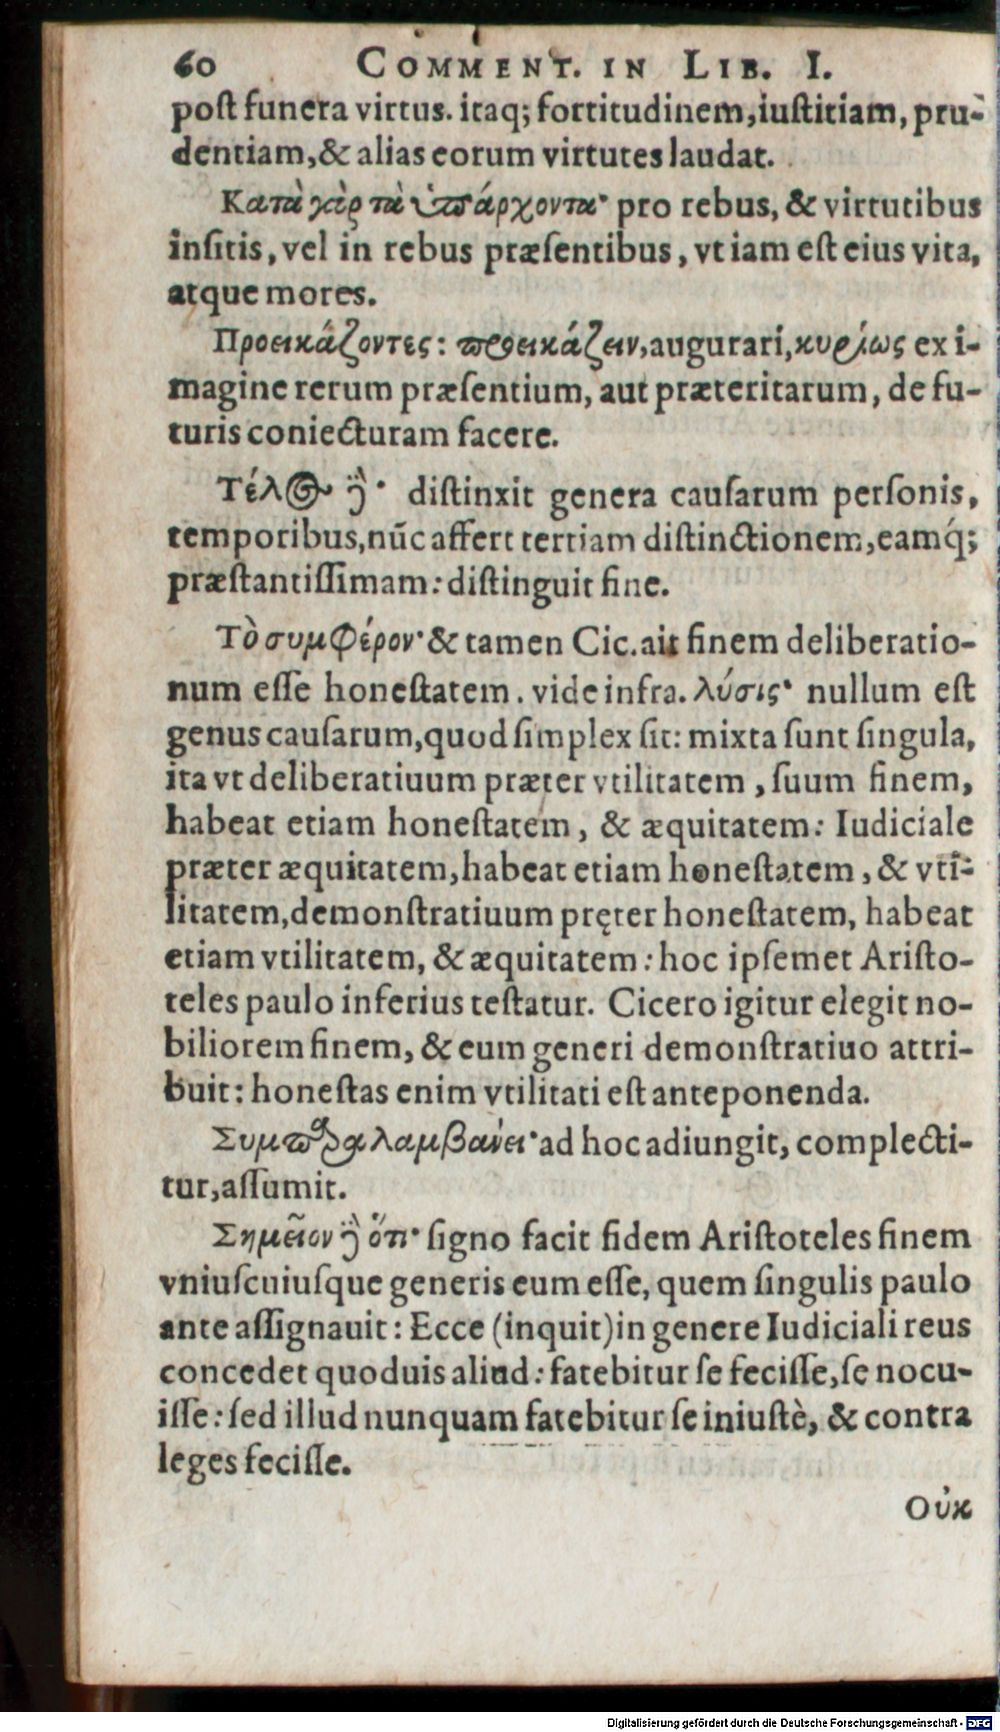 60 COMMENT. IN LIB. I.
post funera virtus. itaq; fortitudinem, iustitiam, pru-
dentiam, & alias eorum virtutes laudat.
Κατὰ γὰρ τὰ ὑπάρχοντα· pro rebus, & virtutibus
insitis, vel in rebus præsentibus, vt iam est eius vita,
atque mores.
Προεικάζοντες: προεικάζειν, augurari, κυρίως ex i-
magine rerum præsentium, aut præteritarum, de fu-
turis coniecturam facere.
Τέλος δὲ· distinxit genera causarum personis,
temporibus, nūc affert tertiam distinctionem, eamq́;
præstantissimam: distinguit fine.
Τὸ συμφέρον· & tamen Cic. ait finem deliberatio-
num esse honestatem. vide infra. λύσις· nullum est
genus causarum, quod simplex sit: mixta sunt singula,
ita vt deliberatiuum præter vtilitatem, suum finem,
habeat etiam honestatem, & æquitatem: Iudiciale
præter æquitatem, habeat etiam honestatem, & vti-
litatem, demonstratiuum pręter honestatem, habeat
etiam vtilitatem, & æquitatem: hoc ipsemet Aristo-
teles paulo inferius testatur. Cicero igitur elegit no-
biliorem finem, & eum generi demonstratiuo attri-
buit: honestas enim vtilitati est anteponenda.
Συμπαραλαμβάνει· ad hoc adiungit, complecti-
tur, assumit.
Σημεῖον δὲ ὅτι· signo facit fidem Aristoteles finem
vniuscuiusque generis eum esse, quem singulis paulo
ante assignauit: Ecce (inquit) in genere Iudiciali reus
concedet quoduis aliud: fatebitur se fecisse, se nocu-
isse: sed illud nunquam fatebitur se iniustè, & contra
leges fecisse.
Οὐκ
Digitalisierung gefördert durch die Deutsche Forschungsgemeinschaft - DFG